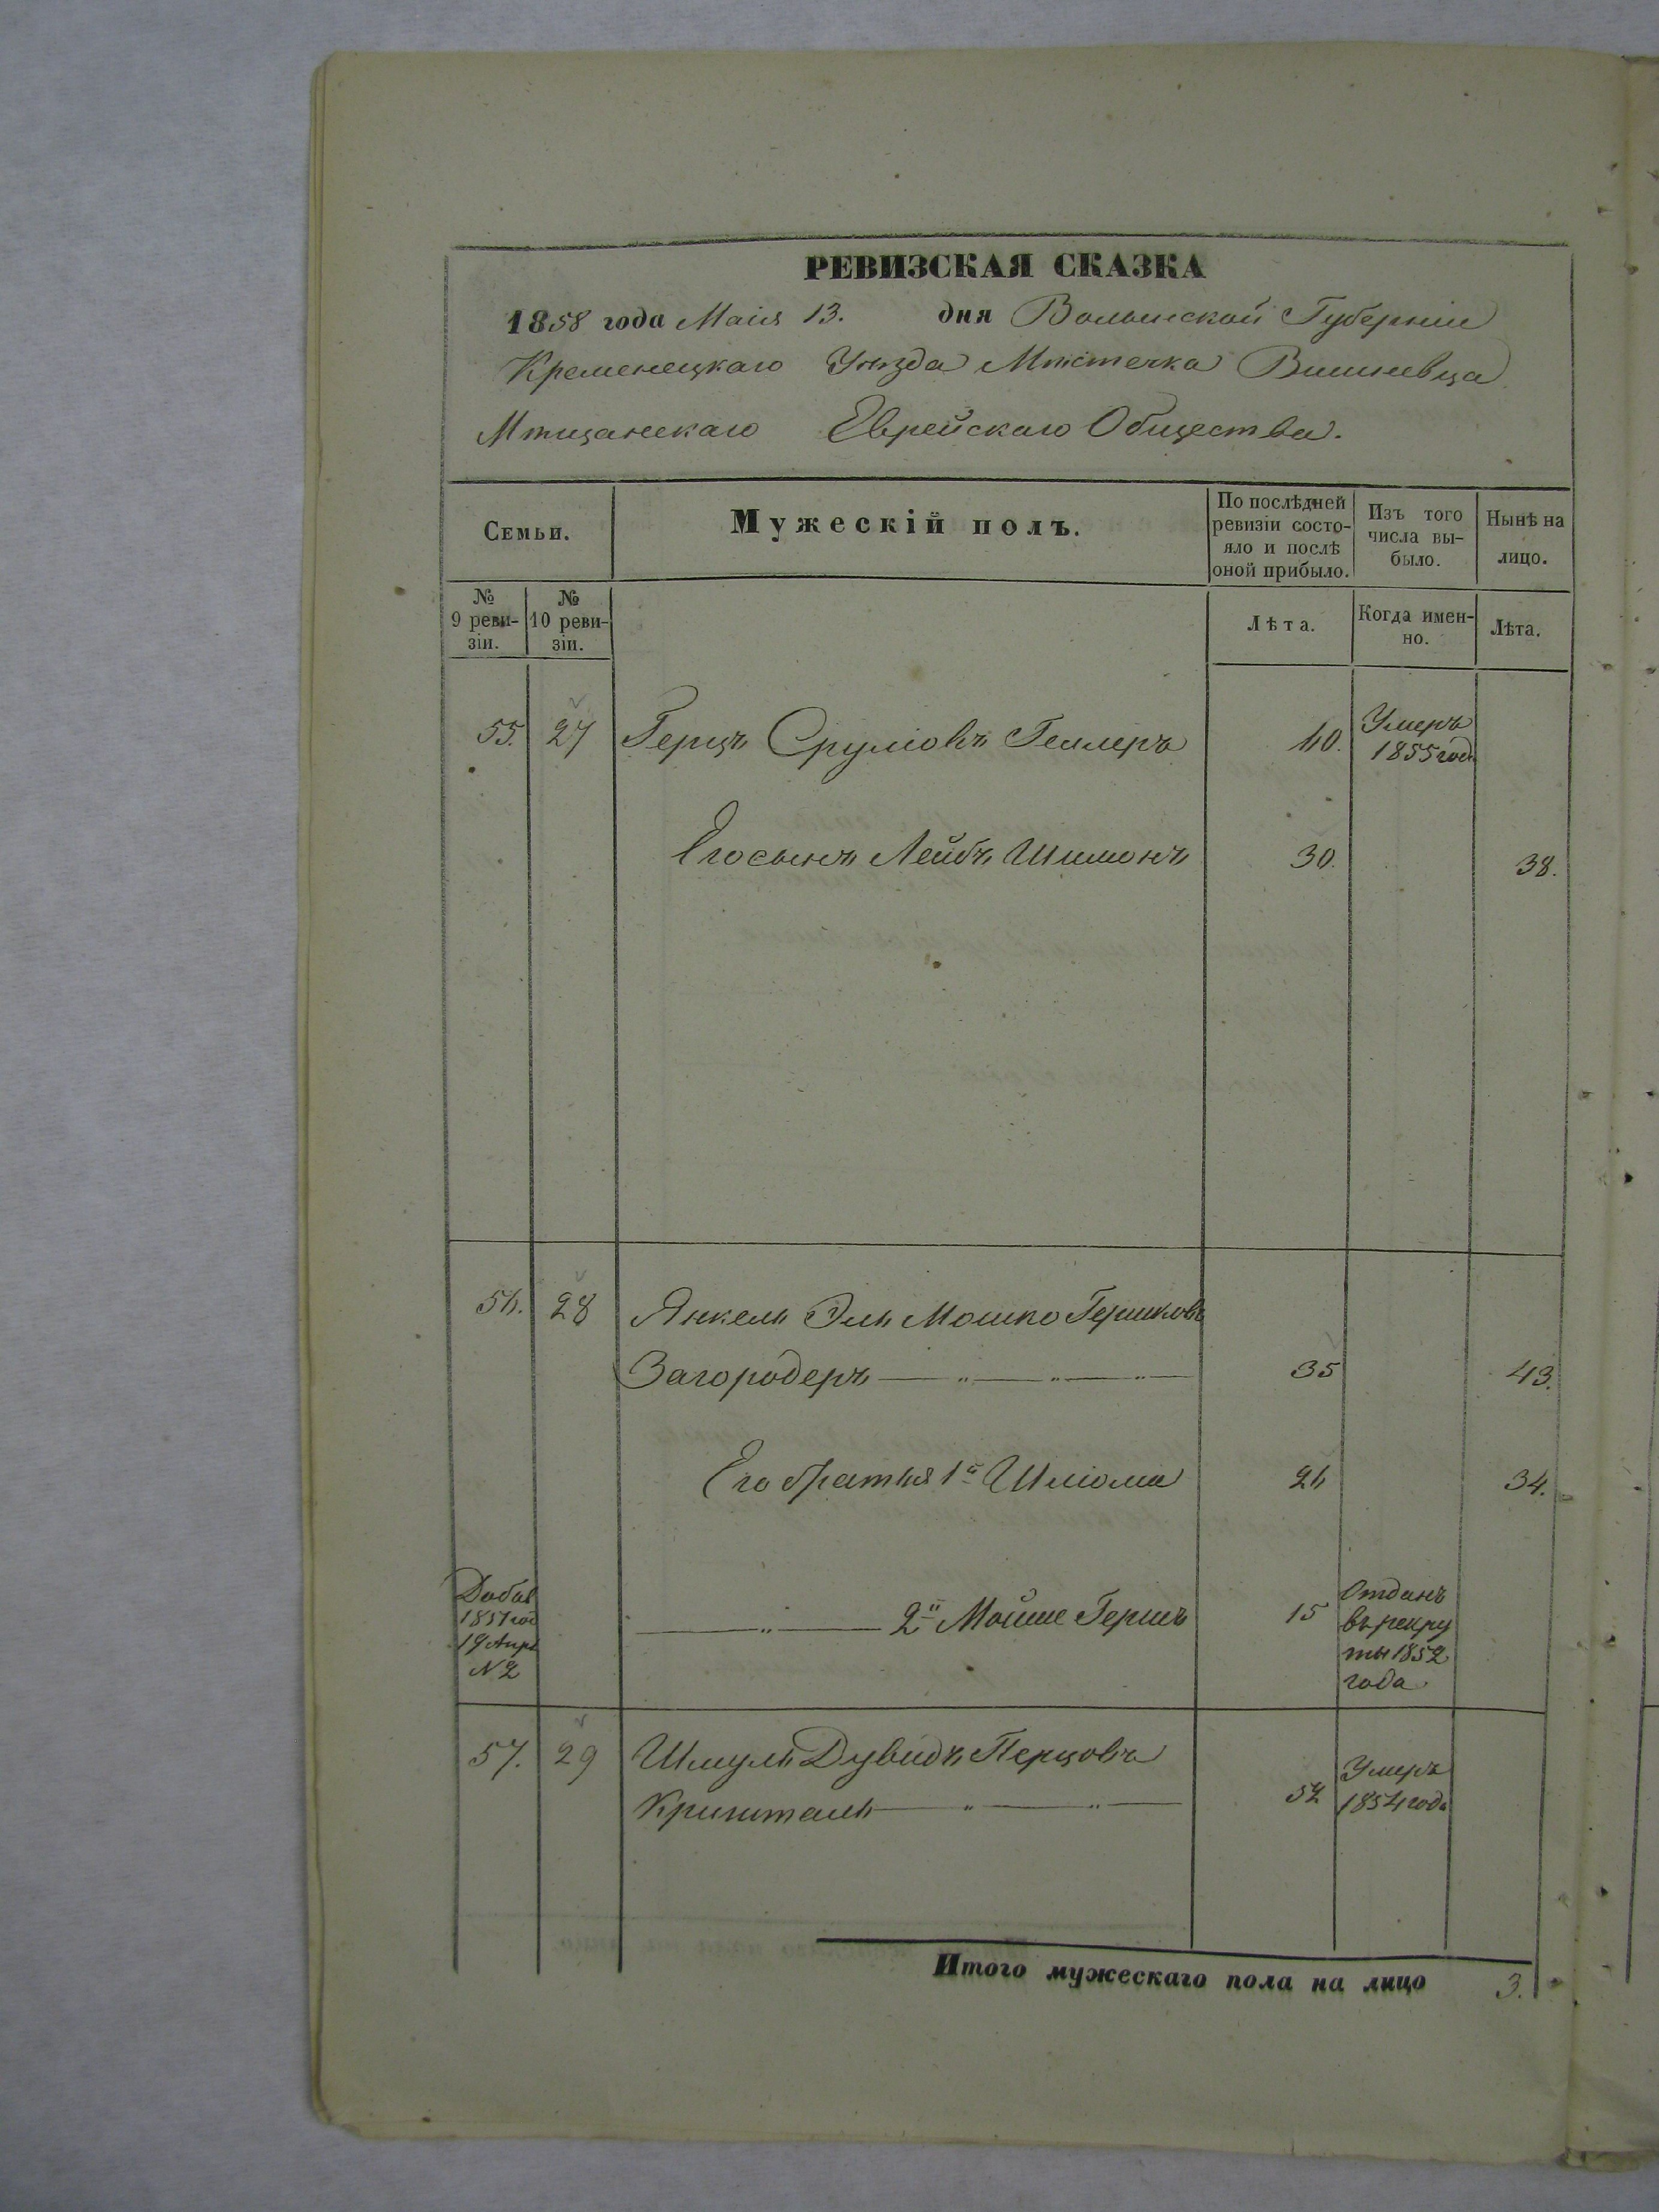 РЕВИЗСКАЯ СКАЗКА
1858 года Маія 13. дня Волынской Губерніи
Кременецкаго Уѣзда Мѣстечка Вишневца
Мѣщанскаго Еврейскаго Общества.
Семьи.
Мужескій полъ.
По послѣдней ревизіи состояло и послѣ оной прибыло.
Изъ того числа выбыло.
Нынѣ на лицо.
№ 9 ревизіи.
№ 10 ревизіи.
Лѣта.
Когда именно.
Лѣта.
55. 27 Герцъ Сруліовъ Геллеръ 40. Умеръ
1855 года
Его сынъ Лейбъ Шимонъ 30. 38.
56. 28 Янкель Эль Мошко Гершковъ
Загородеръ — „ — „ — „ — 35 43.
Его братья 1й Шліома 26 34.
Добав
1851 год
19 Апрѣ
№ 2
— „ — 2й Мойше Гершъ 15 Отданъ
въ рекру
ты 1852
года
57. 29 Шмуль Дувидъ Перцовъ
Кришталь — „ — „ — 52 Умеръ
1854 года
Итого мужескаго пола на лицо 3.